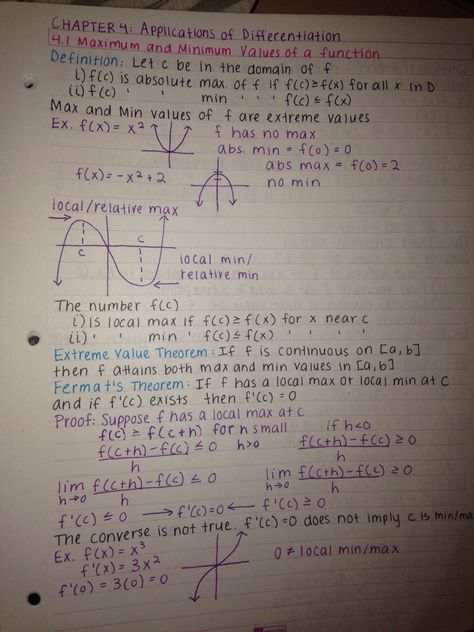 CHAPTER 4: Applications of Differentiation
4.1 Maximum and Minimum Values of a function
Definition: Let c be in the domain of f
i) f(c) is absolute max. of f if f(c) ≥ f(x) for all x in D
ii) f(c) ' ' min ' ' ' f(c) ≤ f(x)
Max and Min values of f are extreme values
Ex. f(x) = x² f has no max
abs. min = f(0) = 0
abs max = f(0) = 2
f(x) = -x² + 2 no min
local/relative max
c
c
local min/
relative min
The number f(c)
i) IS local max if f(c) ≥ f(x) for x near c
ii) ' ' min ' f(c) ≤ f(x) ' ' ' '
Extreme Value Theorem: If f is continuous on [a, b]
then f attains both max and min values in [a, b]
Fermat's Theorem: If f has a local max or local min at c
and if f'(c) exists then f'(c) = 0
Proof: Suppose f has a local max at c
f(c) ≥ f(c+h) for h small if h<0
f(c+h) - f(c) ≤ 0 h>0 f(c+h) - f(c) ≥ 0
h h
lim f(c+h) - f(c) ≤ 0 lim f(c+h) - f(c) ≥ 0
h→0 h h→0 h
f'(c) ≤ 0 → f'(c) = 0 ← f'(c) ≥ 0
The converse is not true. f'(c) = 0 does not imply c is min/max
Ex. f(x) = x³
f'(x) = 3x² 0 ≠ local min/max
f'(0) = 3(0) = 0